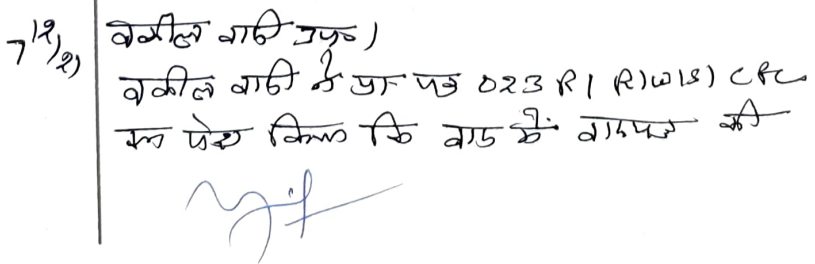 7/12/21
वकील वादी उप०।
वकील वादी ने प्रा पत्र 023 R1 R/W 151 CPC
का पेश किया कि वाद में वादपत्र की